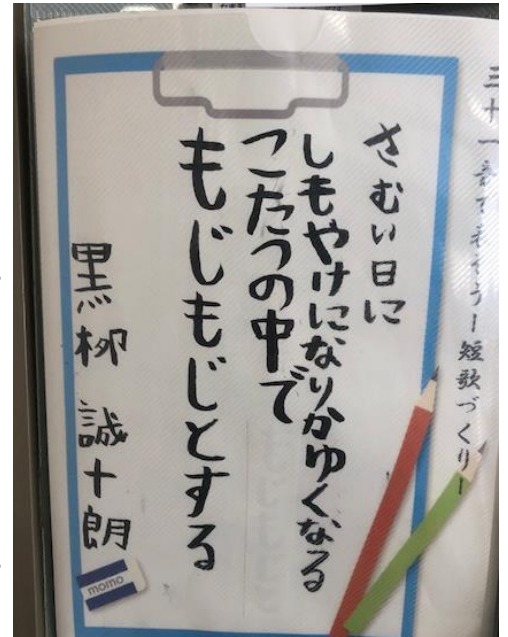 三十一音で伝えよう－短歌づくり－
さむい日に
しもやけになりかゆくなる
こたつの中で
もじもじとする
黒柳 誠十朗
momo